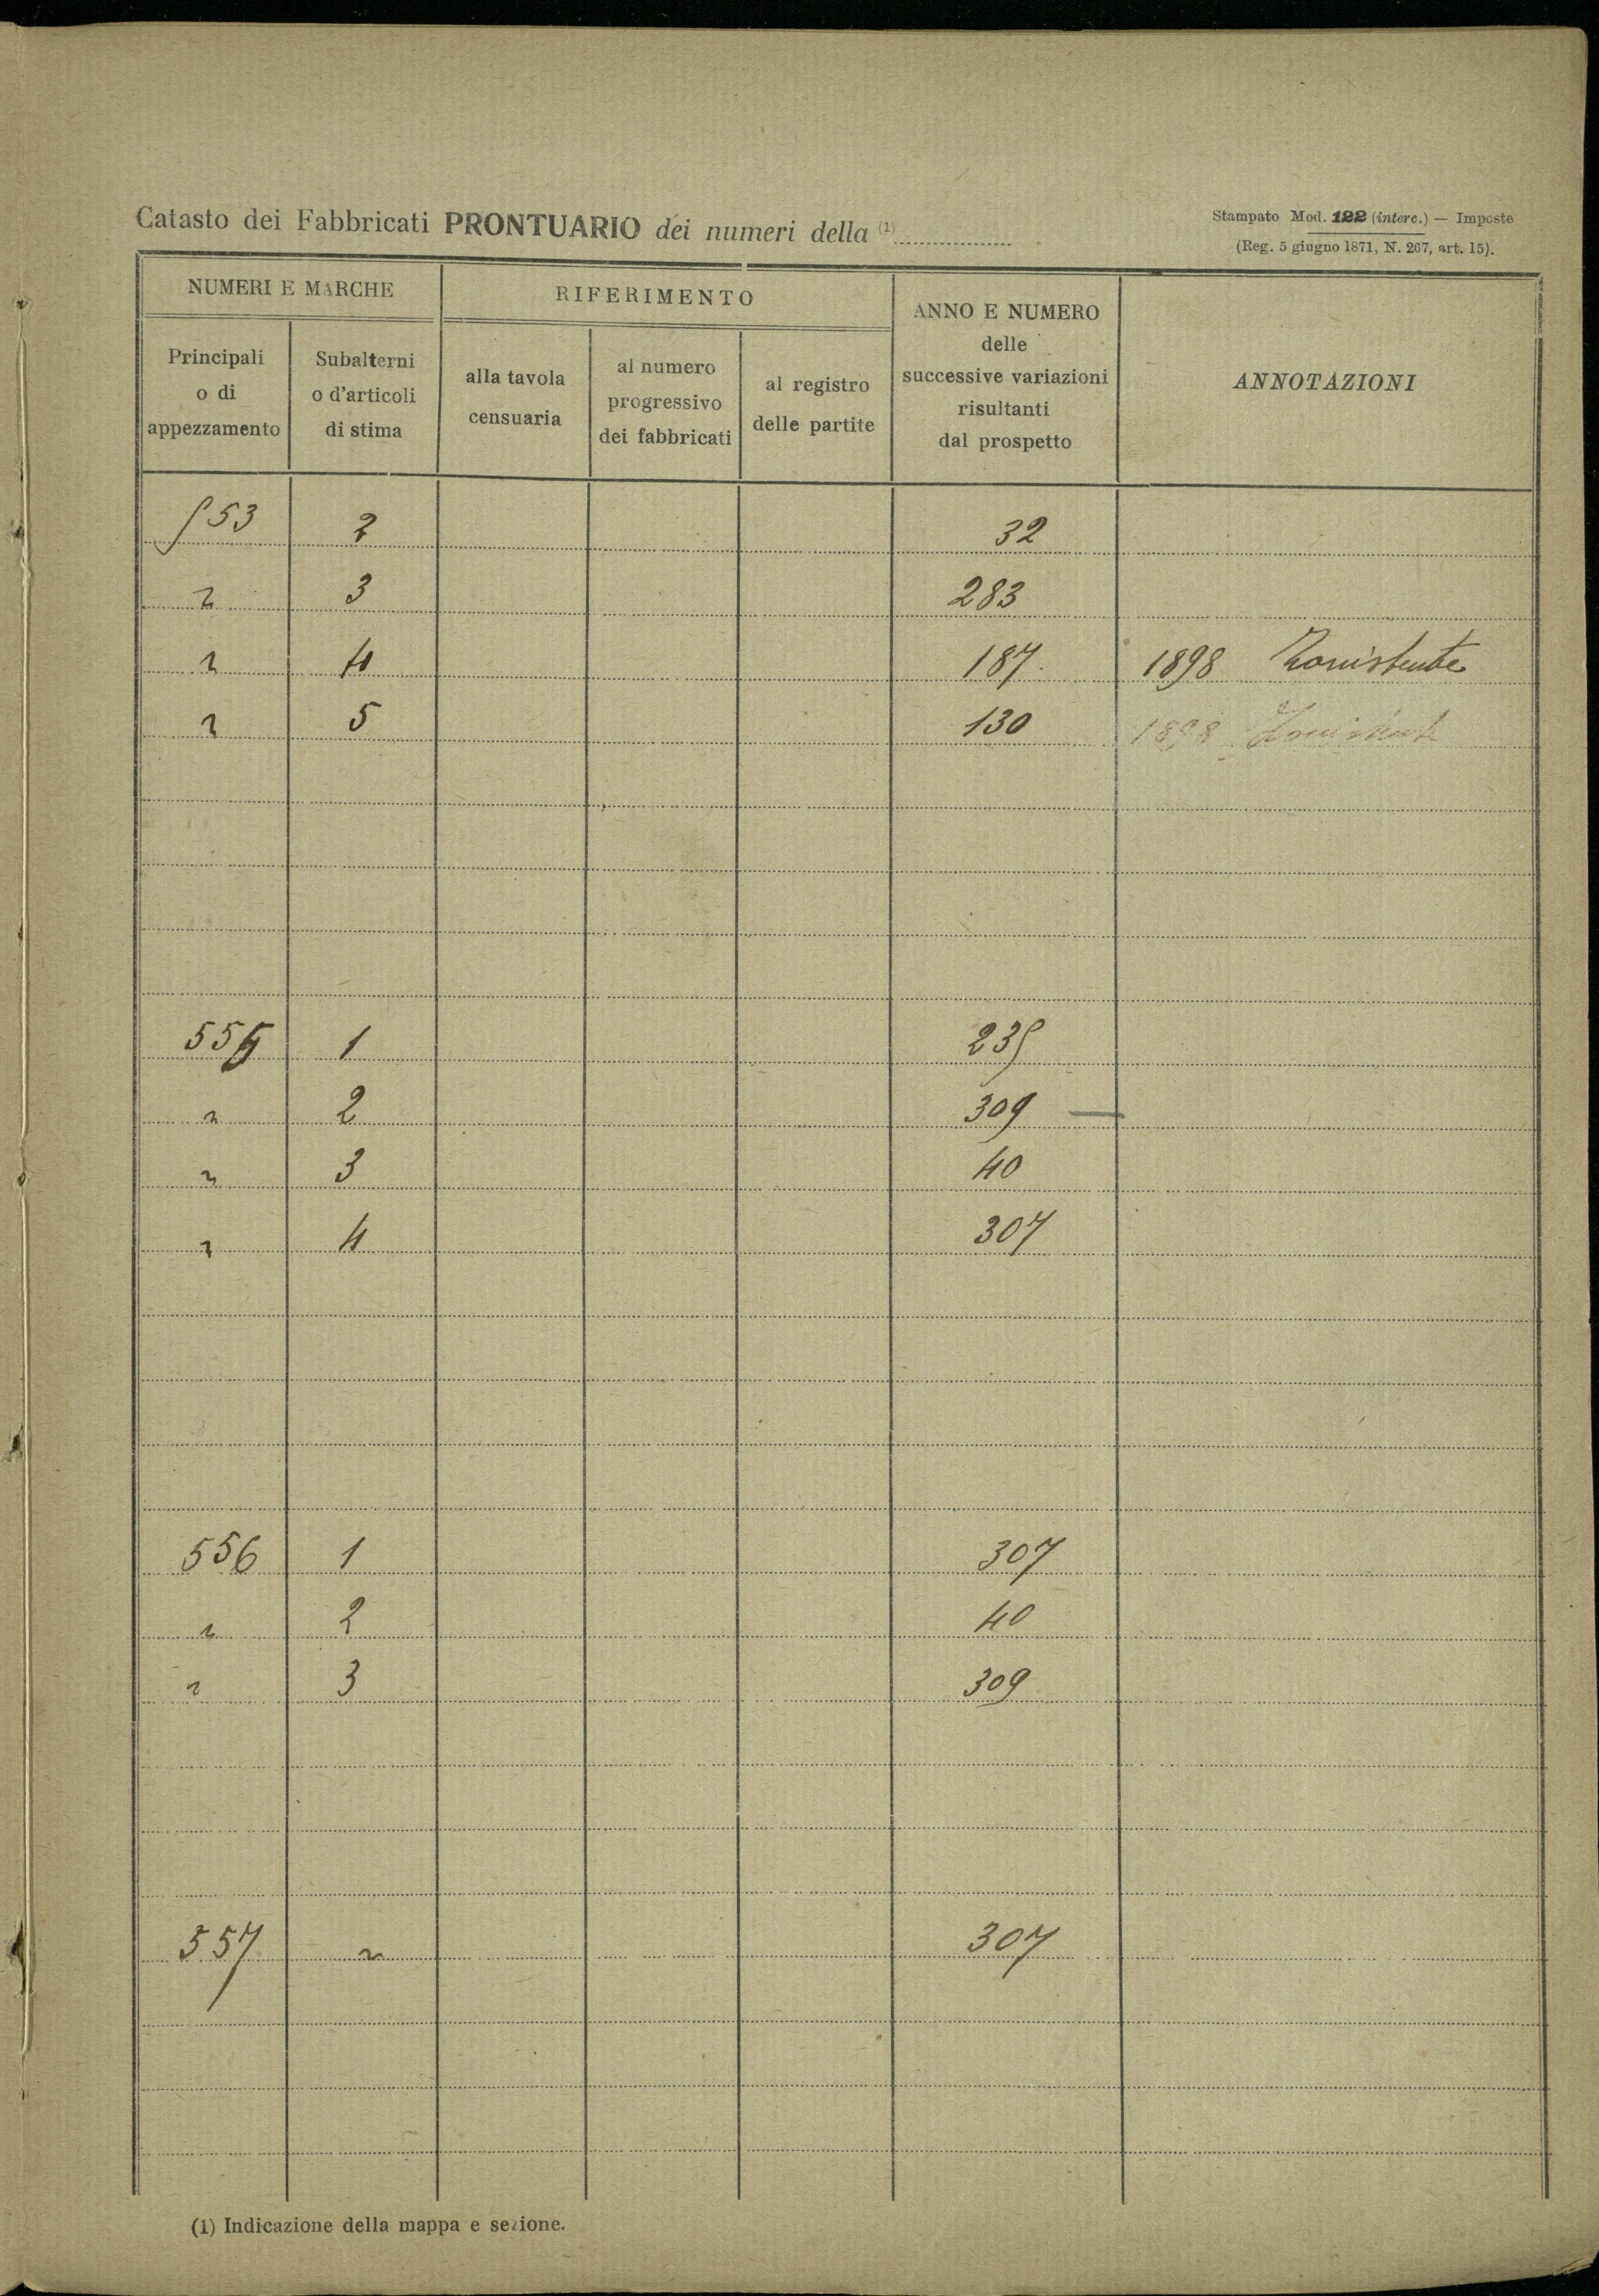 Catasto dei Fabbricati PRONTUARIO dei numeri della (1)
Stampato Mod. 122 (interc.) — Imposte
(Reg. 5 giugno 1871, N. 267, art. 15).
NUMERI E MARCHE
RIFERIMENTO
ANNO E NUMERO
delle
successive variazioni
risultanti
dal prospetto
ANNOTAZIONI
Principali
o di
appezzamento
Subalterni
o d'articoli
di stima
alla tavola
censuaria
al numero
progressivo
dei fabbricati
al registro
delle partite
553 2 32
" 3 283
" 4 187 1898
" 5 130 1898
1 235
" 2 309 —
" 3 40
" 4 307
556 1 307
" 2 40
" 3 309
557 " 307
(1) Indicazione della mappa e sezione.